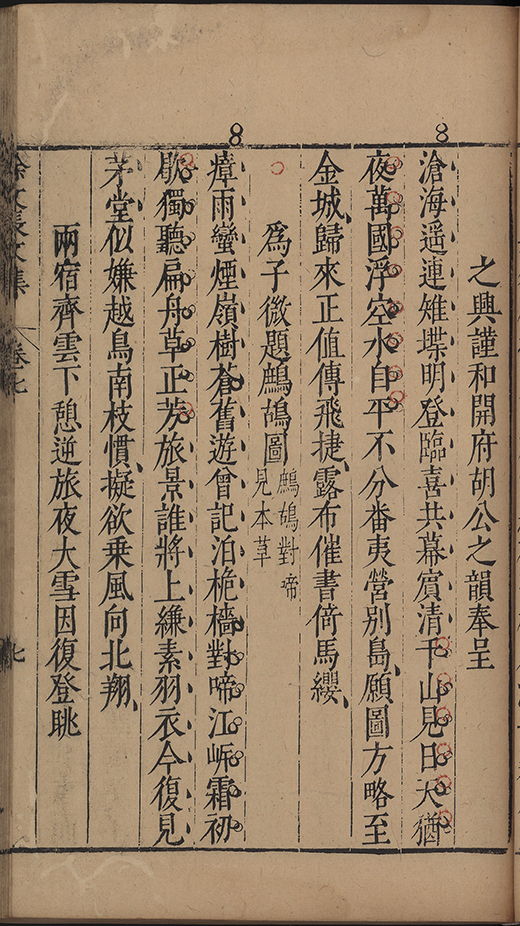 之興謹和開府胡公之韻奉呈
滄海遥連雉堞明登臨喜共幕賓清千山見日天猶
夜萬國浮空水自平不分番夷營别島願圖方略至
金城歸來正值傳飛捷露布催書倚馬纓
爲子微題鷓鴣圖
鷓鴣對啼
見本草
瘴雨蠻煙嶺樹蒼舊遊曾記泊桅檣對啼江岸霜初
歇獨聽扁舟草正芳旅景誰將上縑素羽衣今復見
茅堂似嫌越鳥南枝慣擬欲乗風向北翔
兩宿齊雲下憩逆旅夜大雪因復登眺
徐文長文集
卷七
七